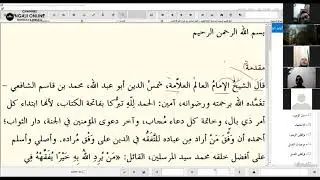 NGAJI ONLINE
بسم الله الرحمن الرحيم
مقدمة
قال الشيخُ الإمامُ العالم العلّامة، شمسُ الدين أبو عبد الله، محمد بن قاسم الشافعي –
تغمَّده الله برحمته ورضوانه، آمين: الحمد لله تبرُّكًا بفاتحة الكتاب، لأنها ابتداء كل
أمر ذي بال، وخاتمة كل دعاء مُجاب، وآخر دعوى المؤمنين في الجنة، دار الثواب؛
أحمده أن وفَّق مَنْ أراد مِن عباده للتَّفَقُّه في الدين على وَفْق مُراده. وأصلي وأسلم
على أفضل خلقه محمد سيد المرسلين، القائل: «مَنْ يُرِدِ اللهُ بِهِ خَيْرًا يُفَقِّهْهُ فِي